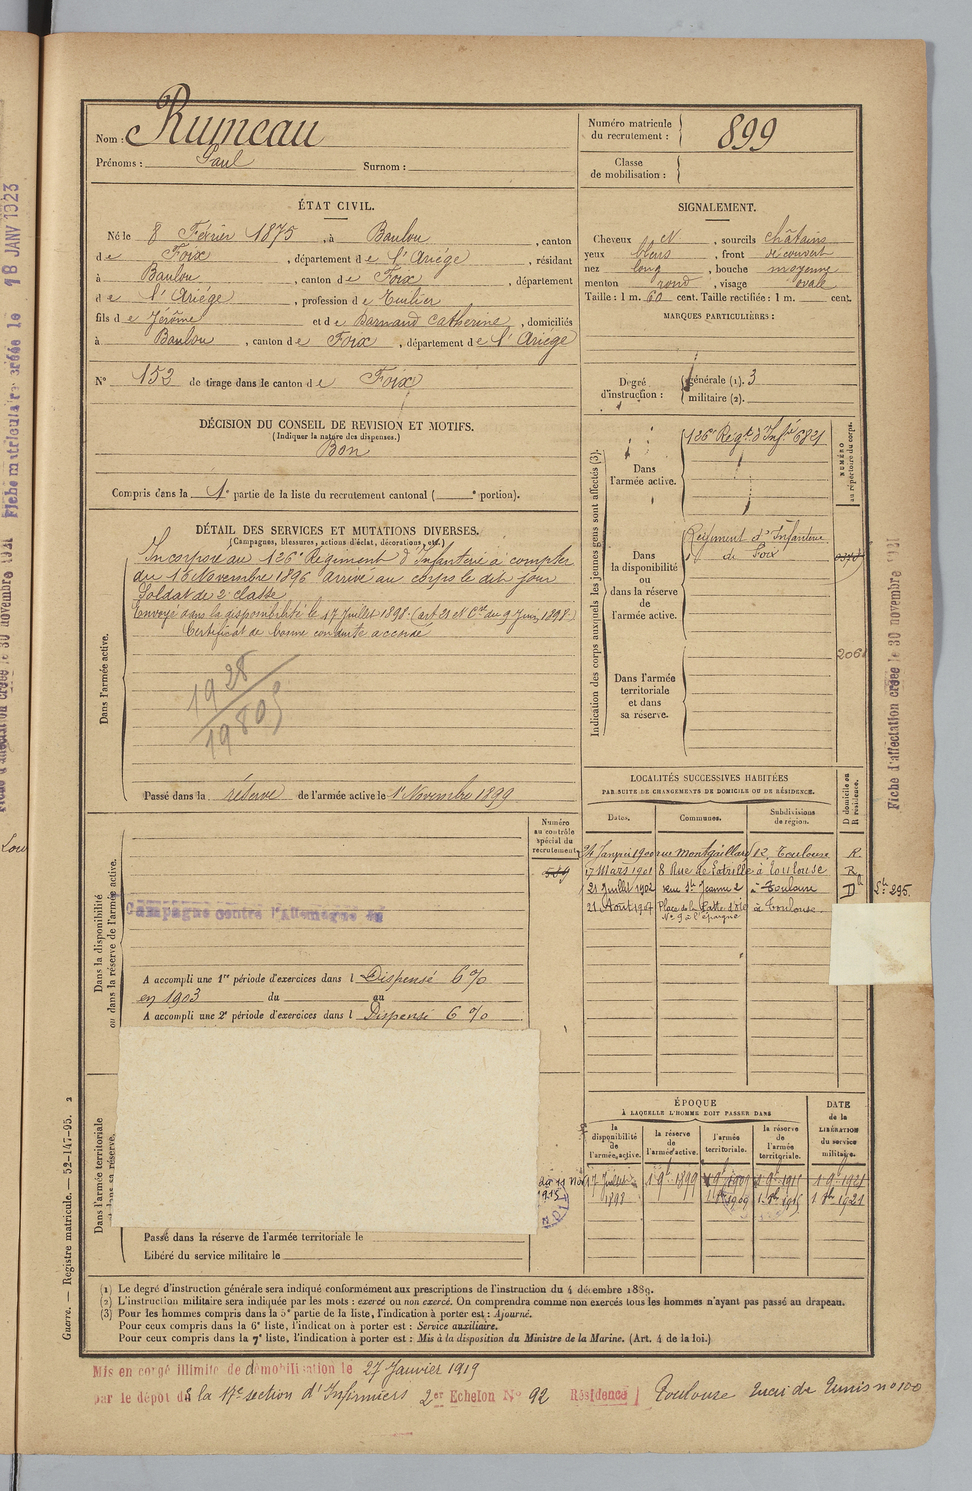 Nom : Rumeau
Prénoms : Paul Surnom :
Numéro matricule du recrutement : 899
Classe de mobilisation :
ÉTAT CIVIL.
Né le 8 Février 1875, à Baulou, canton
de Foix, département de l'Ariège, résidant
à Baulou, canton de Foix, département
de l'Ariège, profession de Tuilier
fils de Jérôme et de Barnaud Catherine, domiciliés
à Baulou, canton de Foix, département de l'Ariége
N° 153 de tirage dans le canton de Foix
SIGNALEMENT.
Cheveux N, sourcils châtains
yeux bleus, front découvert
nez long, bouche moyenne
menton rond, visage ovale
Taille : 1 m. 60 cent. Taille rectifiée : 1 m. cent.
MARQUES PARTICULIÈRES :
Degré d'instruction : générale (1). 3
militaire (2).
DÉCISION DU CONSEIL DE REVISION ET MOTIFS.
(Indiquer la nature des dispenses.)
Bon
Compris dans la 1e partie de la liste du recrutement cantonal ( e portion).
DÉTAIL DES SERVICES ET MUTATIONS DIVERSES.
(Campagnes, blessures, actions d'éclat, décorations, etc.)
Dans l'armée active.
Incorporé au 126e Régiment d'Infanterie à compter
du 16 Novembre 1896 arrivé au corps le dit jour
Soldat de 2e classe
Envoyé dans la disponibilité le 17 Juillet 1898 (art 21 et Cre du 9 Juin 1898)
Certificat de bonne conduite accordé
1928
Passé dans la réserve de l'armée active le 1r Novembre 1899
Indication des corps auxquels les jeunes gens sont affectés (3).
Dans l'armée active.
126e Regt d'Infie 6821
NUMÉRO au répertoire du corps.
Dans la disponibilité ou dans la réserve de l'armée active.
Régiment d'Infanterie
de Foix
Dans l'armée territoriale et dans sa réserve.
2061
LOCALITÉS SUCCESSIVES HABITÉES
PAR SUITE DE CHANGEMENTS DE DOMICILE OU DE RÉSIDENCE.
Dates. Communes. Subdivisions de région. D domicile ou R résidence.
24 Janvier 1900 rue Montgaillard 12, Toulouse R.
17 Mars 1901 8 Rue de l'Etoille à Toulouse R.
21 Juillet 1902 rue Ste Jeanne 2 à Toulouse D
21 Août 1907 Place de la Patte d'oie à Toulouse
N° 9 à l'épargne
St. 295.
Dans la disponibilité ou dans la réserve de l'armée active.
Numéro au contrôle spécial du recrutement.
589
Campagne contre l'Allemagne
A accompli une 1re période d'exercices dans l Dispensé 6 %
en 1903 du au
A accompli une 2e période d'exercices dans l Dispensé 6 %
Dans l'armée territoriale
dans sa réserve.
Passé dans la réserve de l'armée territoriale le
Libéré du service militaire le
ÉPOQUE
À LAQUELLE L'HOMME DOIT PASSER DANS
la disponibilité de l'armée active. la réserve de l'armée active. l'armée territoriale. la réserve de l'armée territoriale.
DATE de la LIBÉRATION du service militaire.
17 Juillet 1898 1 9bre 1899
(1) Le degré d'instruction générale sera indiqué conformément aux prescriptions de l'instruction du 4 décembre 1889.
(2) L'instruction militaire sera indiquée par les mots : exercé ou non exercé. On comprendra comme non exercés tous les hommes n'ayant pas passé au drapeau.
(3) Pour les hommes compris dans la 5e partie de la liste, l'indication à porter est : Ajourné.
Pour ceux compris dans la 6e liste, l'indication à porter est : Service auxiliaire.
Pour ceux compris dans la 7e liste, l'indication à porter est : Mis à la disposition du Ministre de la Marine. (Art. 4 de la loi.)
Mis en congé illimité de démobilisation le 27 Janvier 1919
par le dépôt de la 17e section d'Infirmiers 2er Echelon N° 92 Résidence Toulouse rue de Tunis n° 100
Guerre. — Registre matricule. — 52-147-95. 2
Fiche matriculaire créée le 18 JANV 1923
Fiche d'affectation créée le 30 novembre 1921